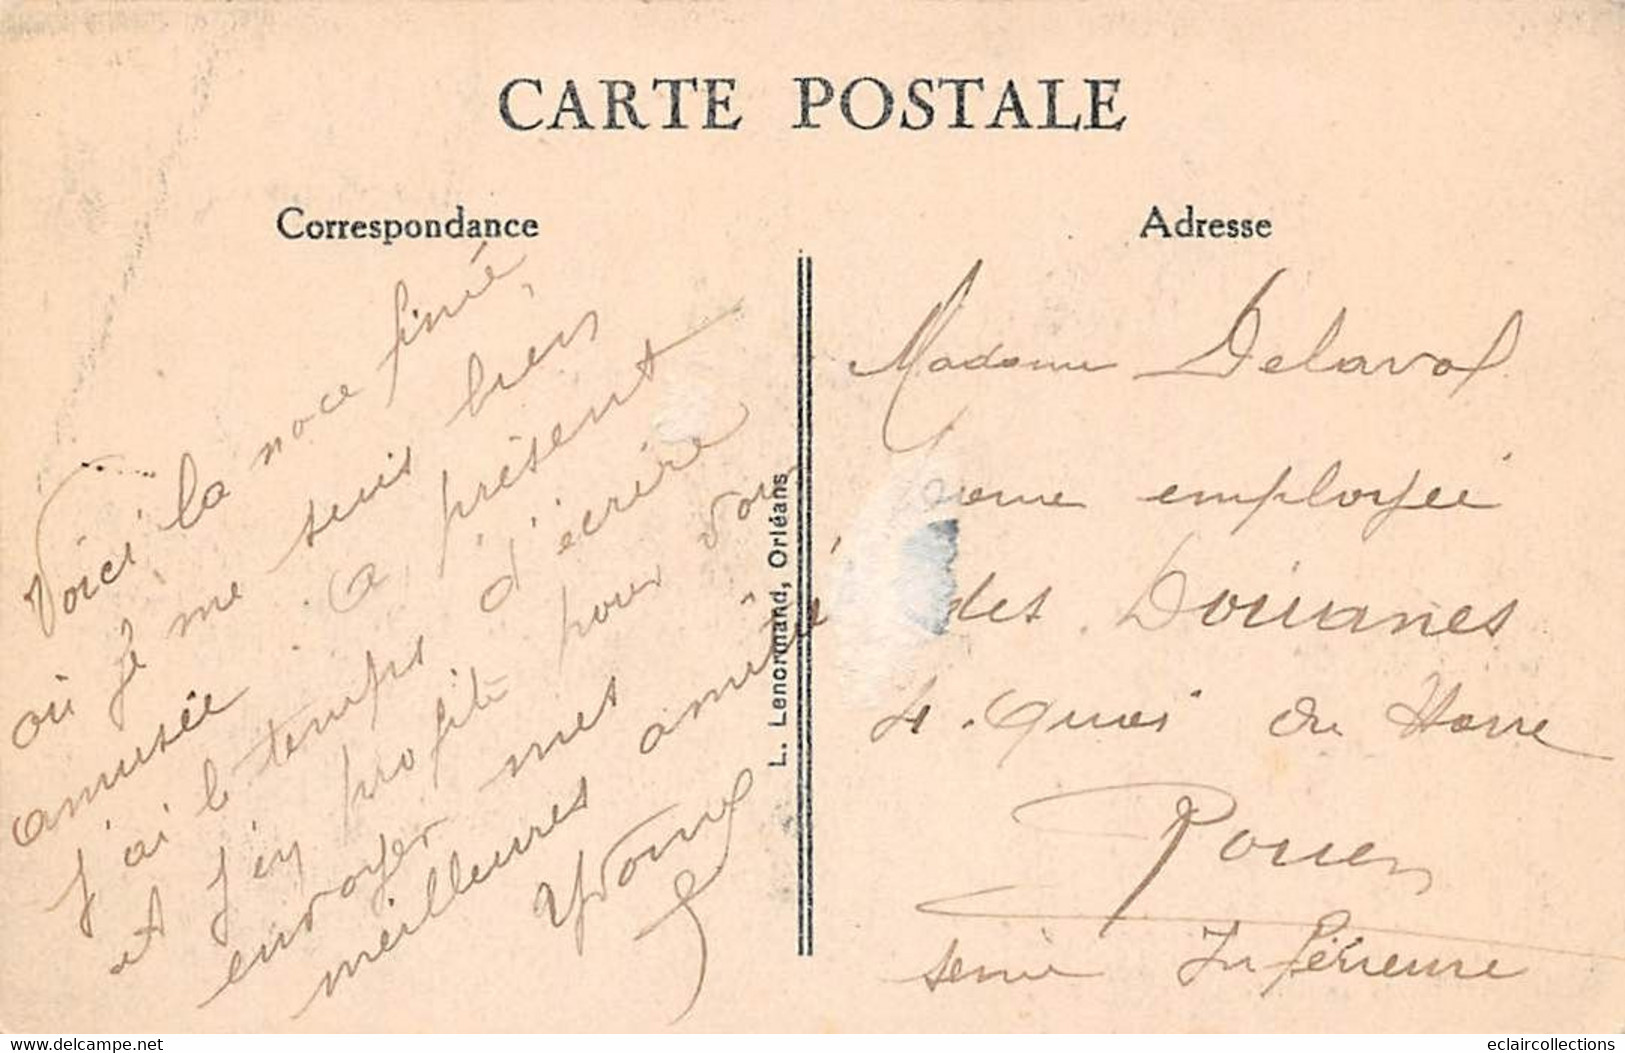 CARTE POSTALE
Correspondance
Voici la noce finie,
où je me suis bien
amusée. A présent
j'ai le temps d'écrire
et j'en profite pour vous
envoyer mes
meilleures amitié
Yvonne
L. Lenormand, Orléans
Adresse
Madame Delaval
employée
des Douanes
4. Quai du Havre
Rouen
Seine Inférieure
Delcampe.net
eclaircollections